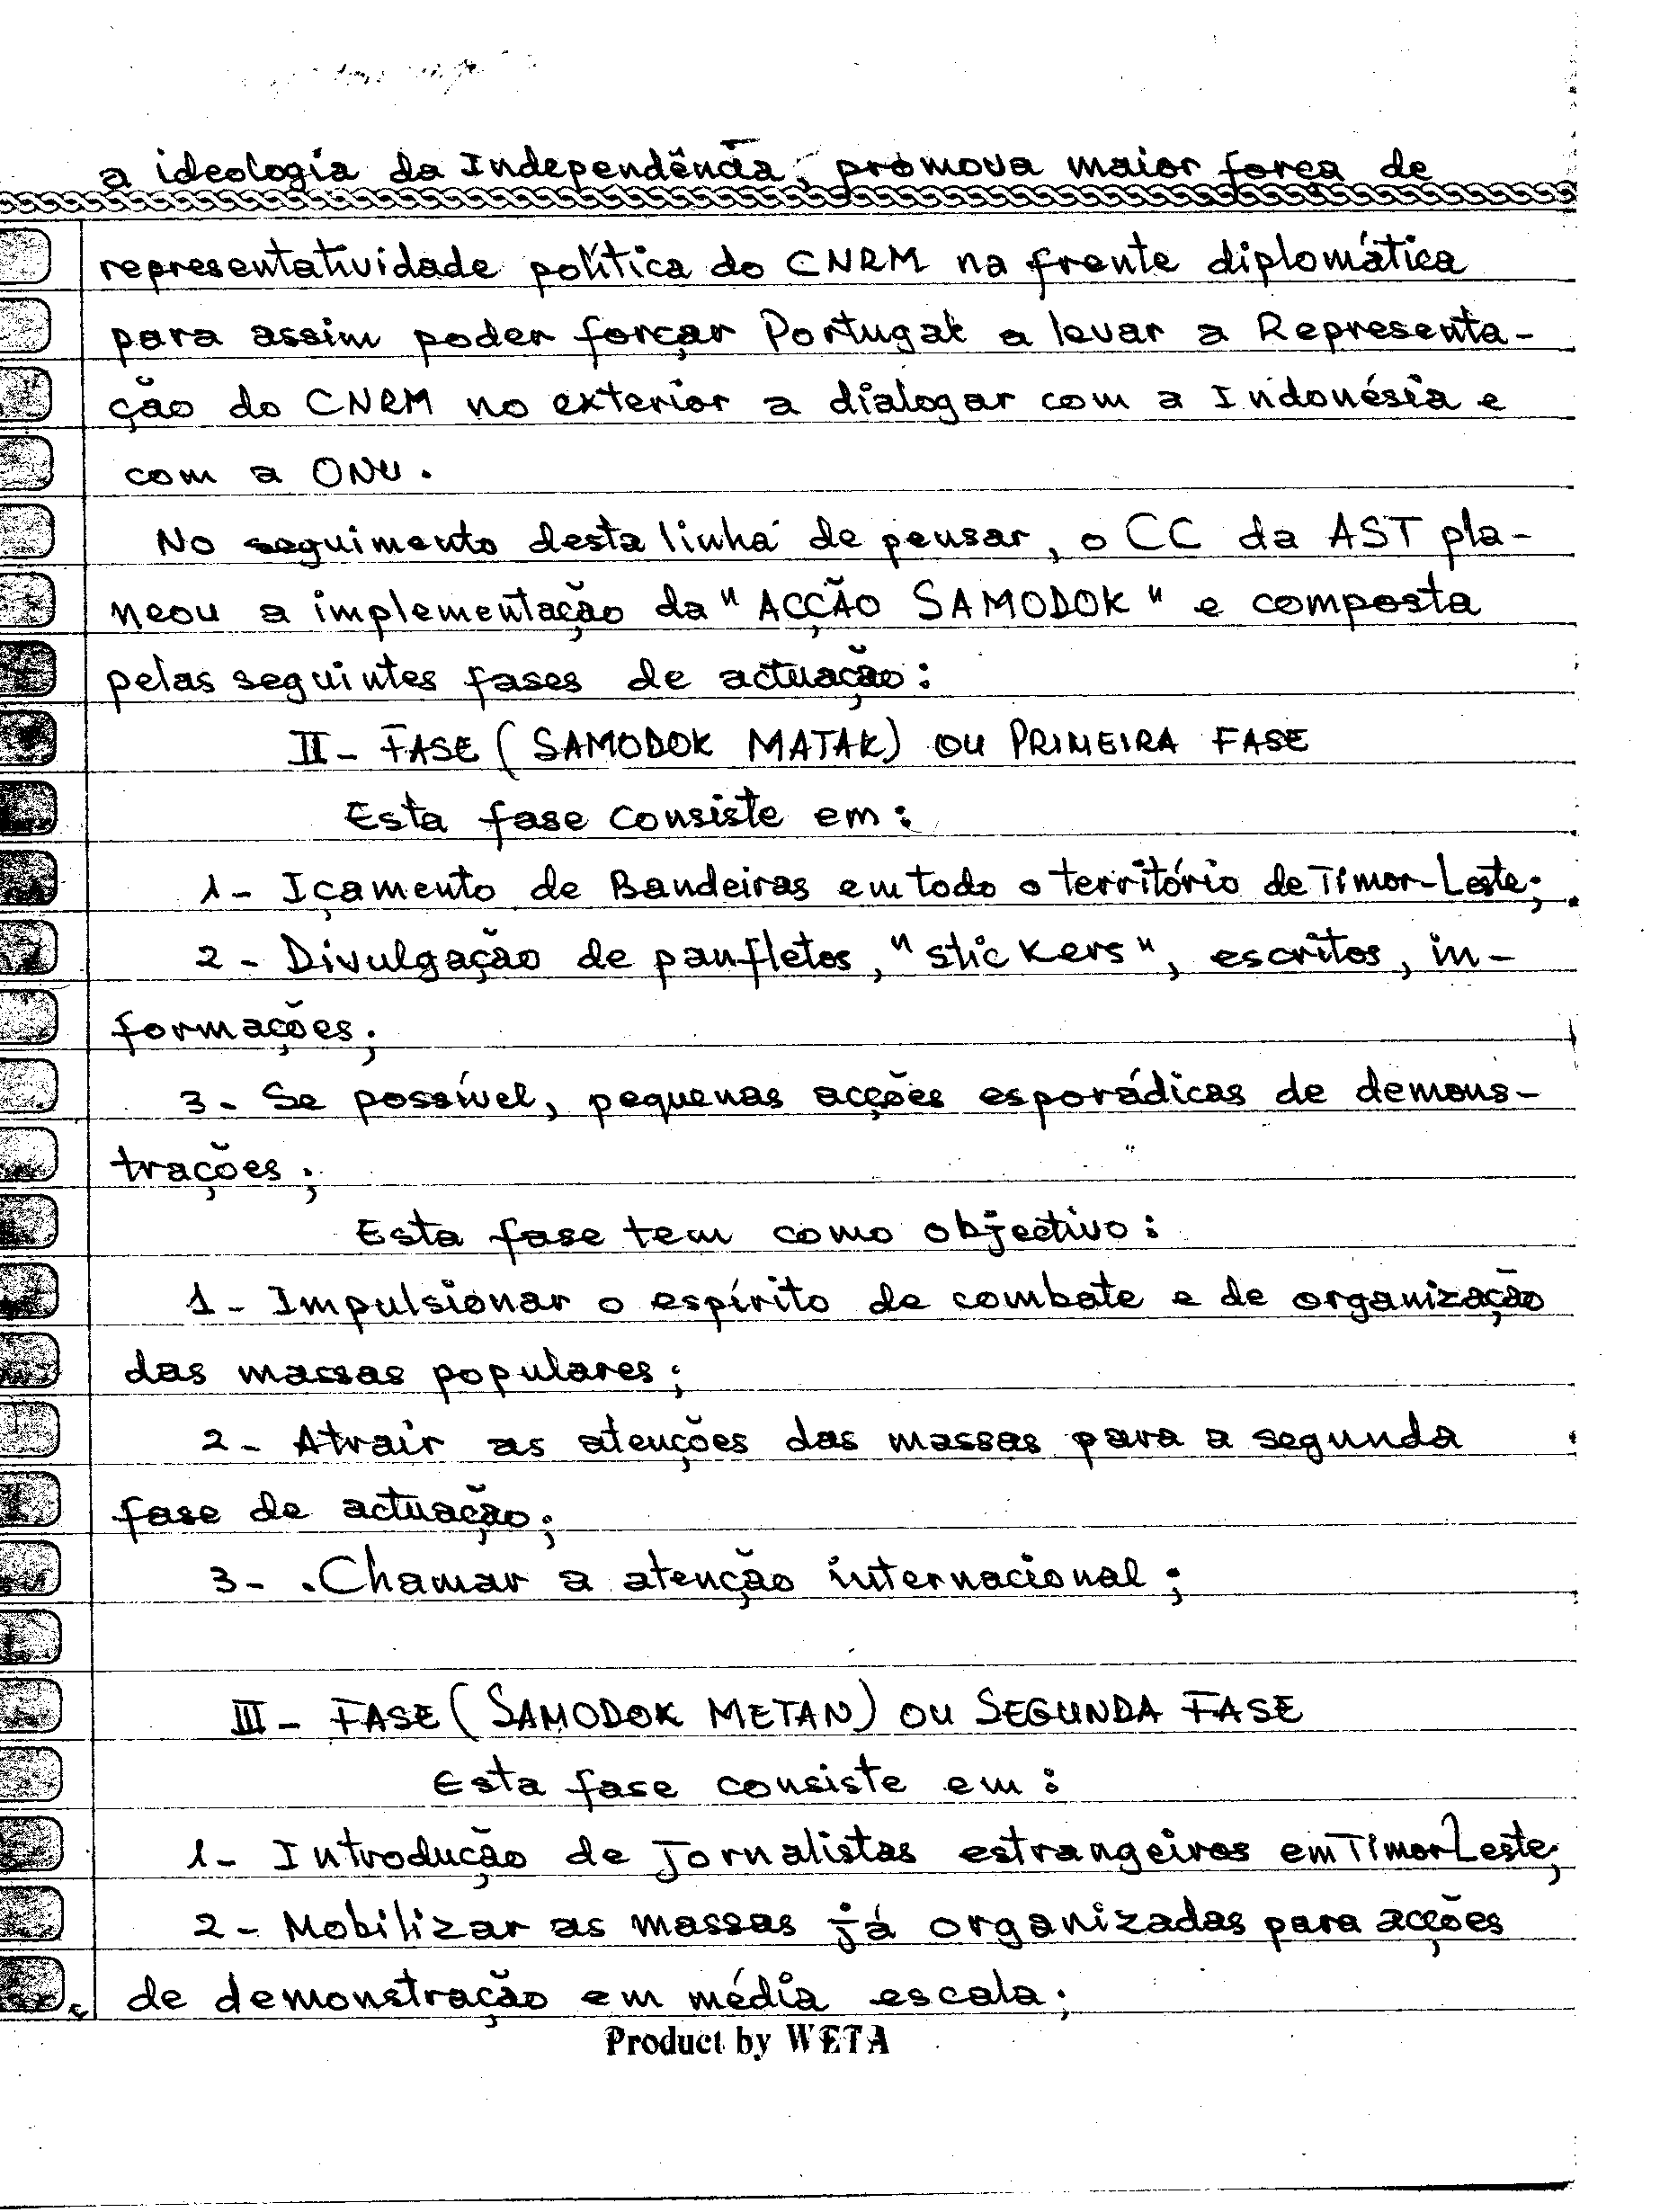 a ideologia da Independência, promova maior força de
representatividade política do CNRM na frente diplomática
para assim poder forçar Portugal a levar a Representa-
ção do CNRM no exterior a dialogar com a Indonésia e
com a ONU.
No seguimento desta linha de pensar, o CC da AST pla-
neou a implementação da "ACÇÃO SAMODOK" e composta
pelas seguintes fases de actuação:
II - FASE (SAMODOK MATAK) OU PRIMEIRA FASE
Esta fase consiste em:
1- Içamento de Bandeiras em todo o território de Timor-Leste;
2 - Divulgação de panfletos, "stickers", escritos, in-
formações;
3- Se possível, pequenas acções esporádicas de demons-
trações;
Esta fase tem como objectivo:
1- Impulsionar o espírito de combate e de organização
das massas populares;
2- Atrair as atenções das massas para a segunda
fase de actuação;
3- Chamar a atenção internacional;
III - FASE (SAMODOK METAN) OU SEGUNDA FASE
Esta fase consiste em:
1- Introdução de Jornalistas estrangeiros em Timor Leste;
2- Mobilizar as massas já organizadas para acções
de demonstração em média escala;
Product by WETA